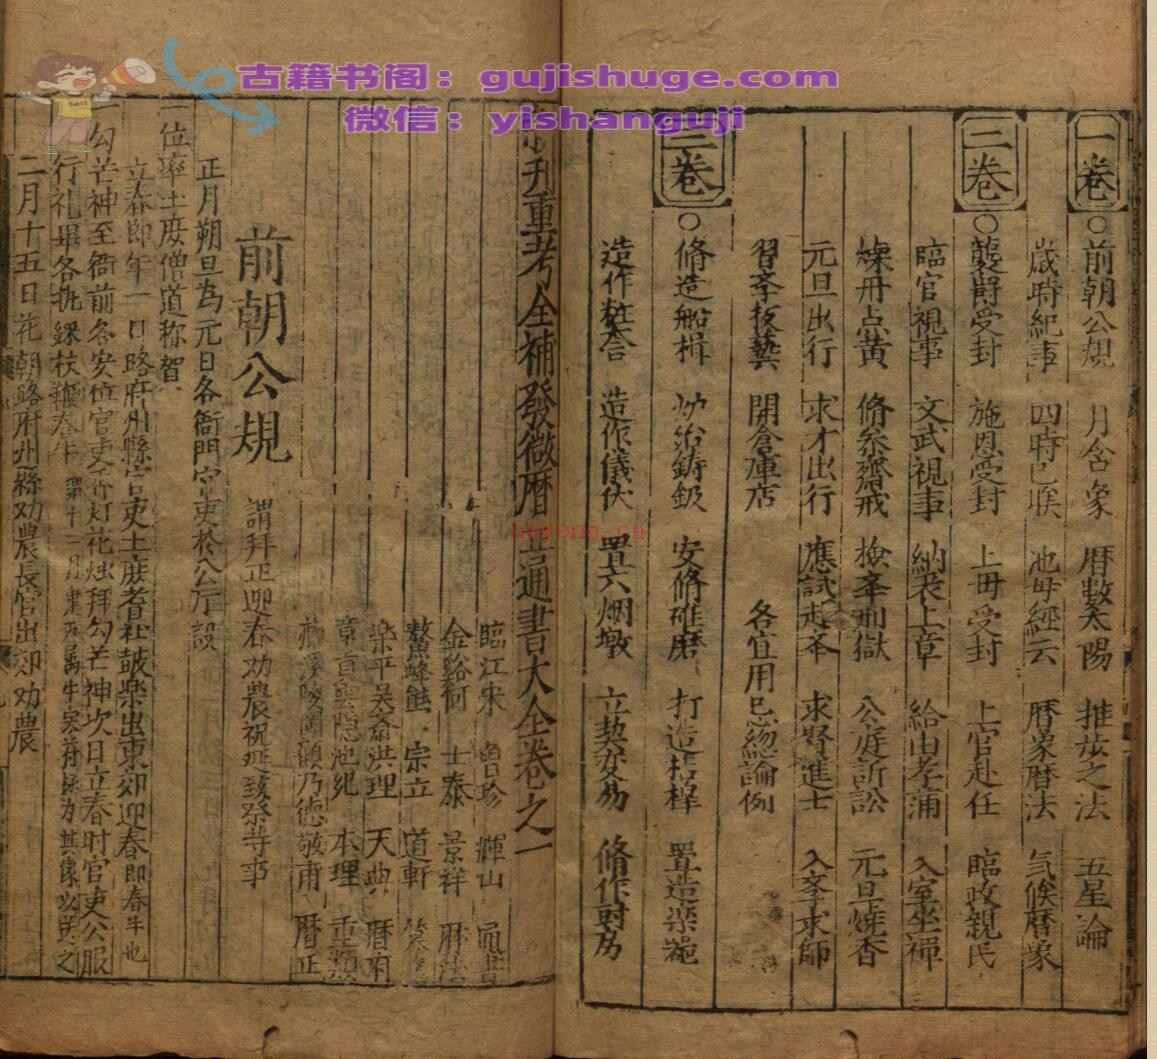 古籍书阁：gujishuge.com
微信：yishanguji
一卷○前朝公規 月含象 暦数太陽 推步之法 五星論
歳時紀事 四時已候 池毋經云 暦象暦法 気候暦象
二卷○襲爵受封 施恩受封 上毋受封 上官赴任 臨政親民
臨官視事 文武視事 納表上章 給由考滿 入室坐禅
煉丹点黄 脩叅齋戒 撿夆刑獄 公庭訴訟 元旦燒香
元旦出行 求才出行 應試赴夆 求賢進士 入孝求師
習孝技藝 開倉庫店 各宜用忌緫論例
三卷○脩造船楫 炉冶鋳 安脩碓磨 打造 置造楽
造作粧奩 造作儀仗 置六烟墩 立契交易 脩作厨房
刋重考全補發微暦 通書大全卷之一
臨江宋 魯珍 輝山
金谿何 士泰 景祥 暦法
鰲峰熊 宗立 道軒
楽平吴斎洪理 天典 暦府
章貢雲隠池紀 本理 重
乃德敬甫 暦正
前朝公規 謂拜正迎春劝農祝 致祭等事
正月朔旦為元日各衙門官吏於公厅設
位率士庻僧道称賀
立春節年一日路府州縣官吏士庻耆社皷楽出東郊迎春即春牛也
勾芒神至衙前各安位官吏 灯花烛拜勾芒神次日立春时官吏公服
行礼畢各执綵杖鞭春牛 十二月建 属牛寒 为其像以送之
二月十五日花朝路府州縣劝農長官出郊劝農
noyonn.cn